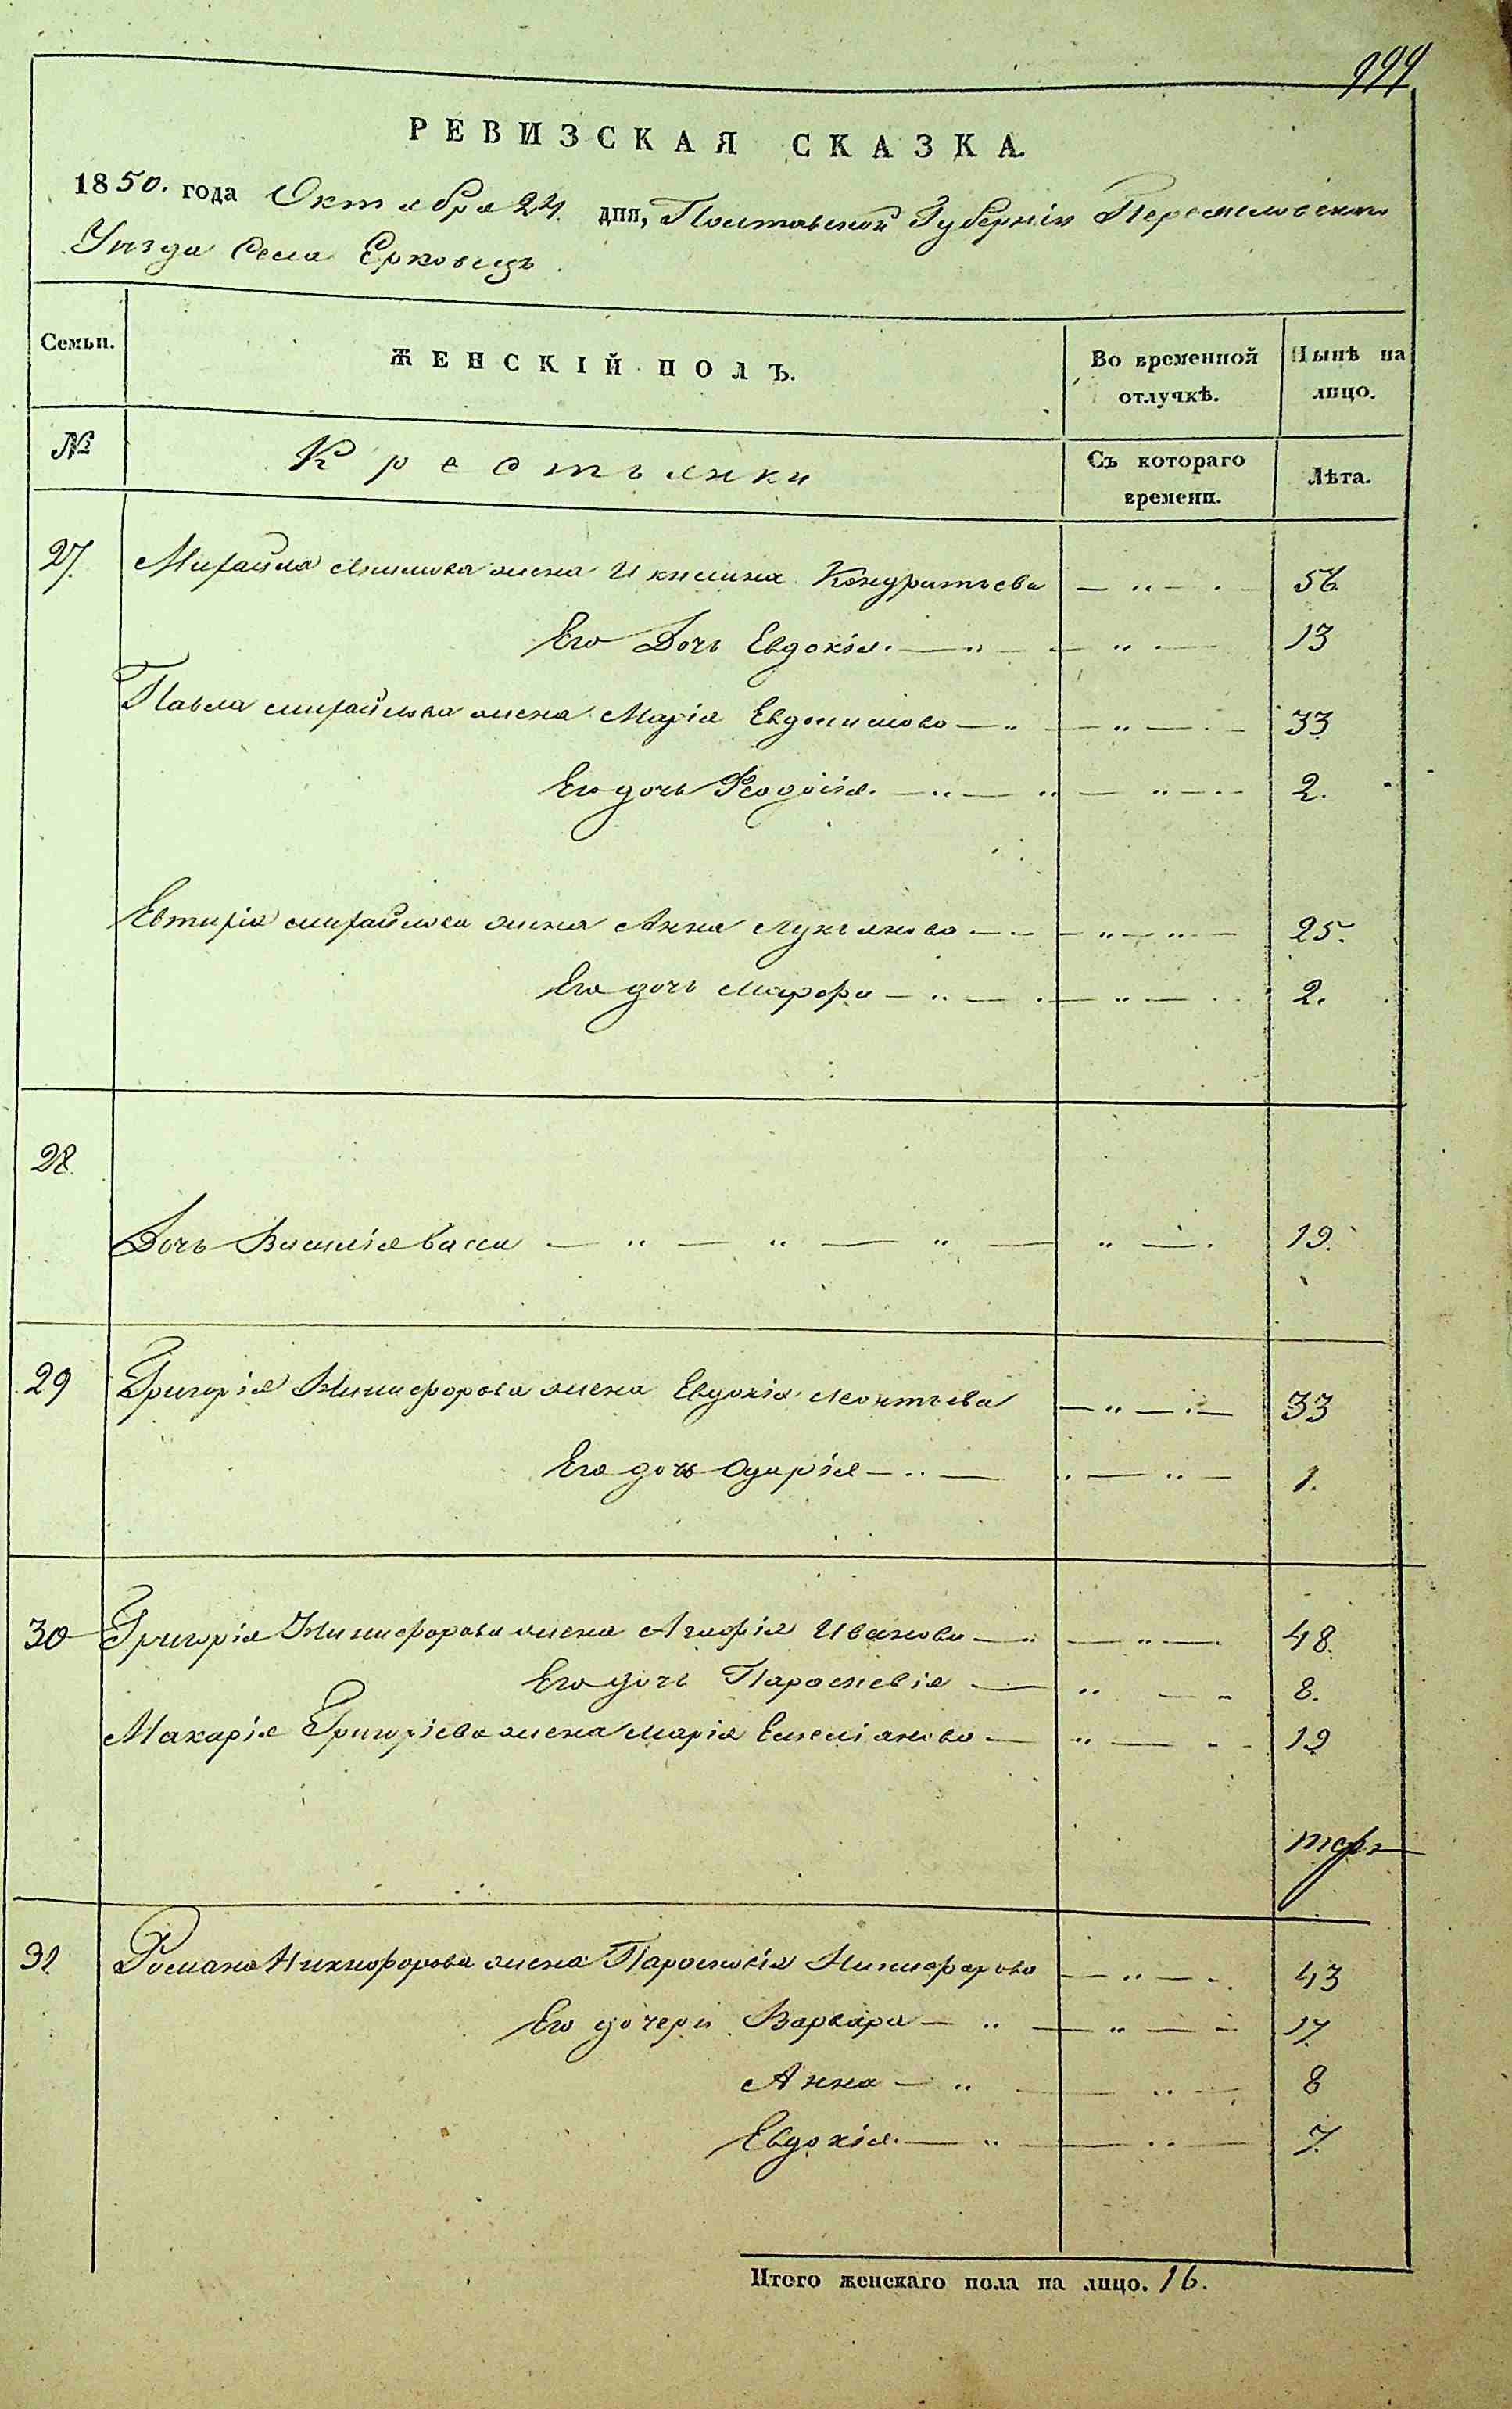 999
РЕВИЗСКАЯ СКАЗКА
1850. года Октября 24. дня, Полтавской Губерніи Переяславскаго
Уѣзда Села Ерковецъ
Семьи.
ЖЕНСКІЙ ПОЛЪ.
Во временной отлучкѣ.
Нынѣ на лицо.
№
Крестьянки
Съ котораго времени.
Лѣта.
27. Михайла жена Кондратьева 56
Его Дочь Евдокія. 13
Павла михайлова жена Марія Евдокимова 33
Его дочь Феодосія. 2.
Евтихія михайлова жена Анна Лукьянова 25.
Его дочь Марфа 2.
28.
Дочь Василіса 19.
29 Григорія Никифорова жена Евдокія Леонтьева 33
Его дочь Одарія 1.
30 Григорія Никифорова жена Агафія Иванова 48.
Его дочь Параскевія 8.
Макарія Григоріева жена Марія Емеліянова 19
31. Романа Никифорова жена Параскевія Никифорова 43
Его дочери Варвара 17.
Анна 8
Евдокія. 7.
Итого женскаго пола на лицо. 16.